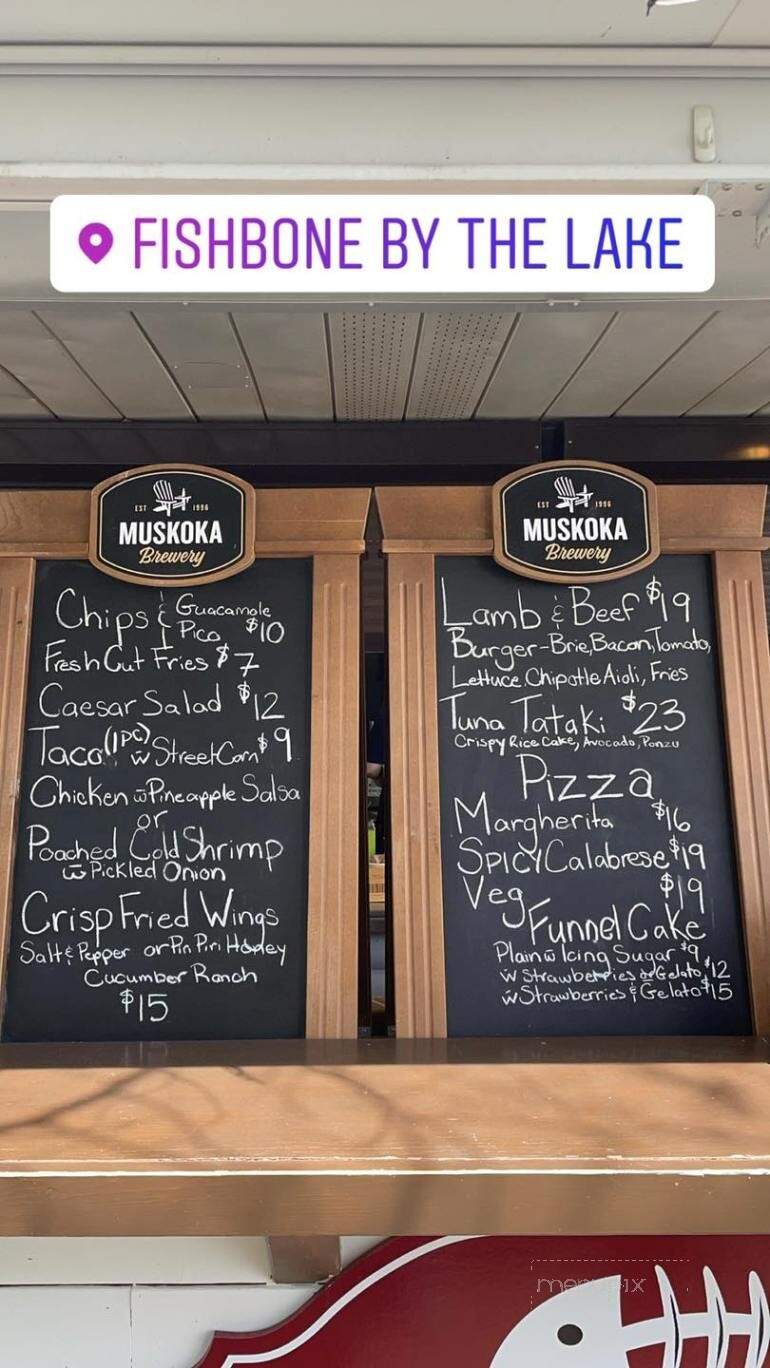 FISHBONE BY THE LAKE
EST 1996
MUSKOKA
Brewery
Chips & Guacamole
Pico $10
Fresh Cut Fries $7
Caesar Salad $12
Taco (1pc) w StreetCorn $9
Chicken w Pineapple Salsa
or
Poached Cold Shrimp
w Pickled Onion
Crisp Fried Wings
Salt & Pepper or Piri Piri Honey
Cucumber Ranch
$15
EST 1996
MUSKOKA
Brewery
Lamb & Beef $19
Burger-Brie, Bacon, Tomato,
Lettuce, Chipotle Aioli, Fries
Tuna Tataki $23
Crispy Rice Cake, Avocado, Ponzu
Pizza
Margherita $16
SPICY Calabrese $19
Veg $19
Funnel Cake
Plain w Icing Sugar $9
w Strawberries or Gelato $12
w Strawberries & Gelato $15
menupix